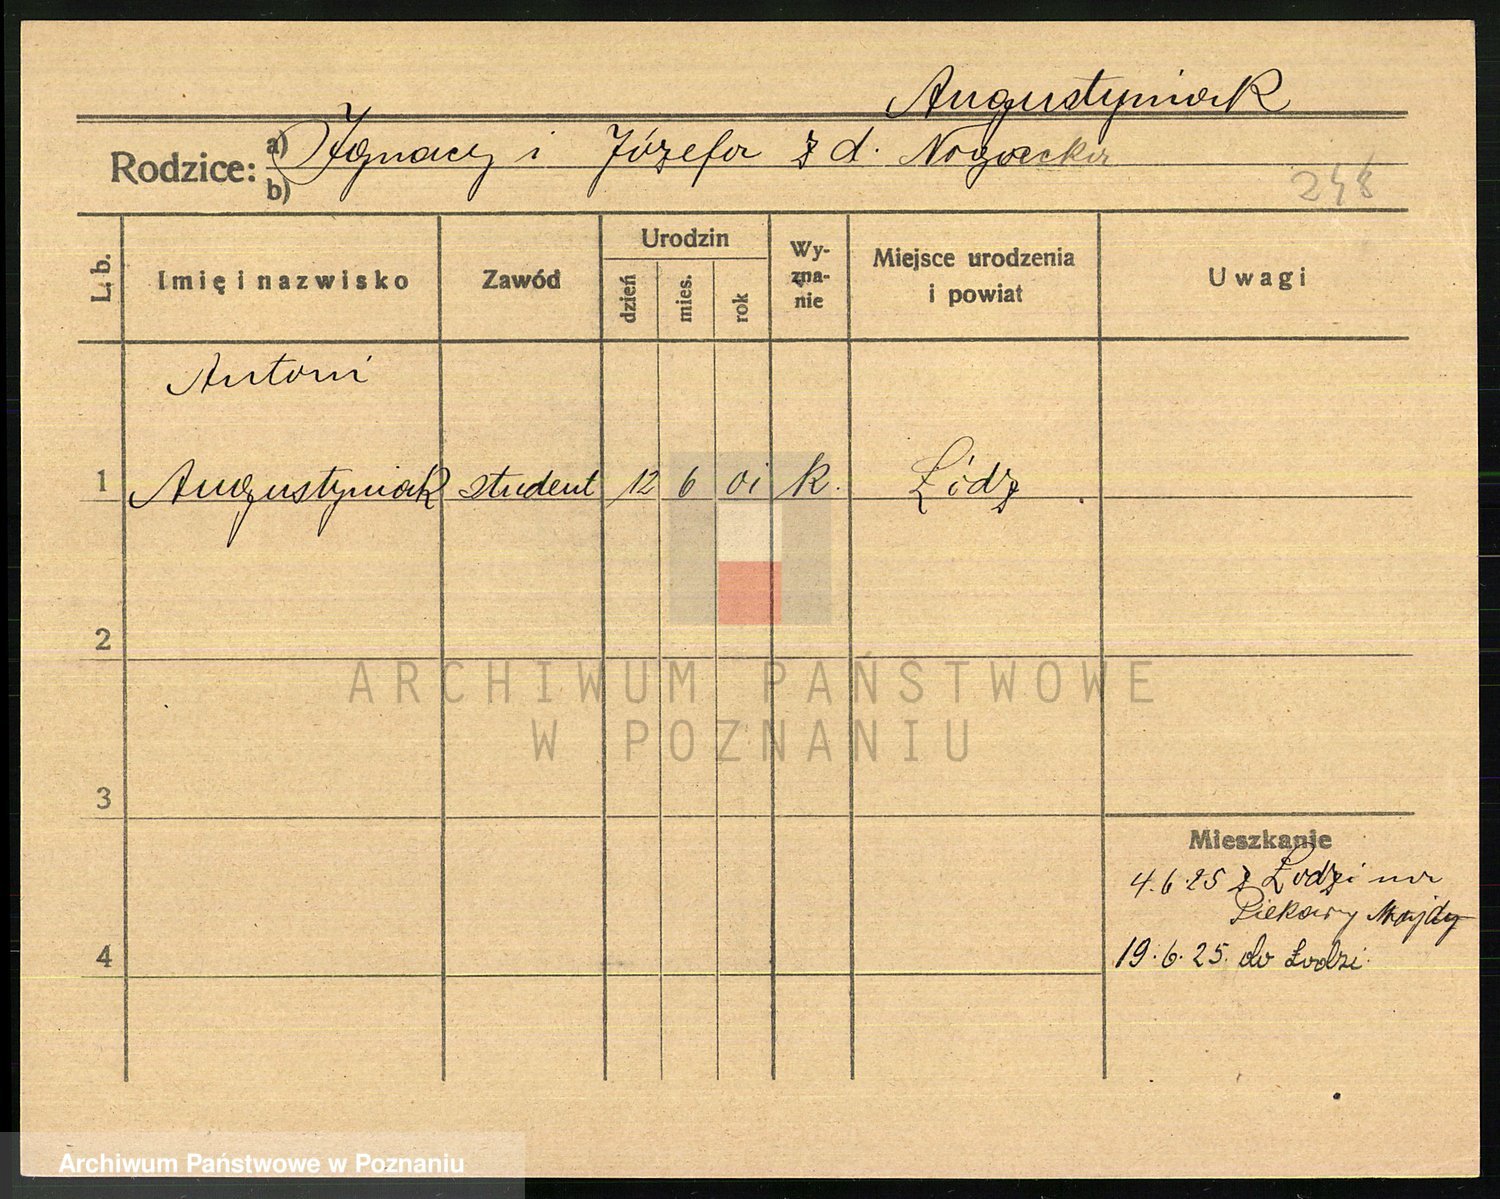 Augustyniak
Rodzice: a) Ignacy i Józefa z d. Nogacka
b)
248
L. b.
Imię i nazwisko
Zawód
Urodzin
dzień
mies.
rok
Wy-
zna-
nie
Miejsce urodzenia
i powiat
Uwagi
Antoni
1 Augustyniak student 12 6 01 k. Łódz
2
ARCHIWUM PAŃSTWOWE
W POZNANIU
3
Mieszkanie
4.6.25 z Łodzi na
Piekary
19.6.25. do Łodzi.
4
Archiwum Państwowe w Poznaniu